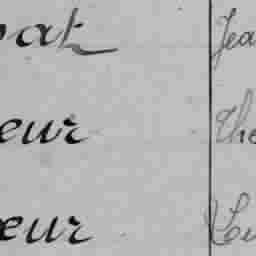 at Jea
eur The
œur Lu